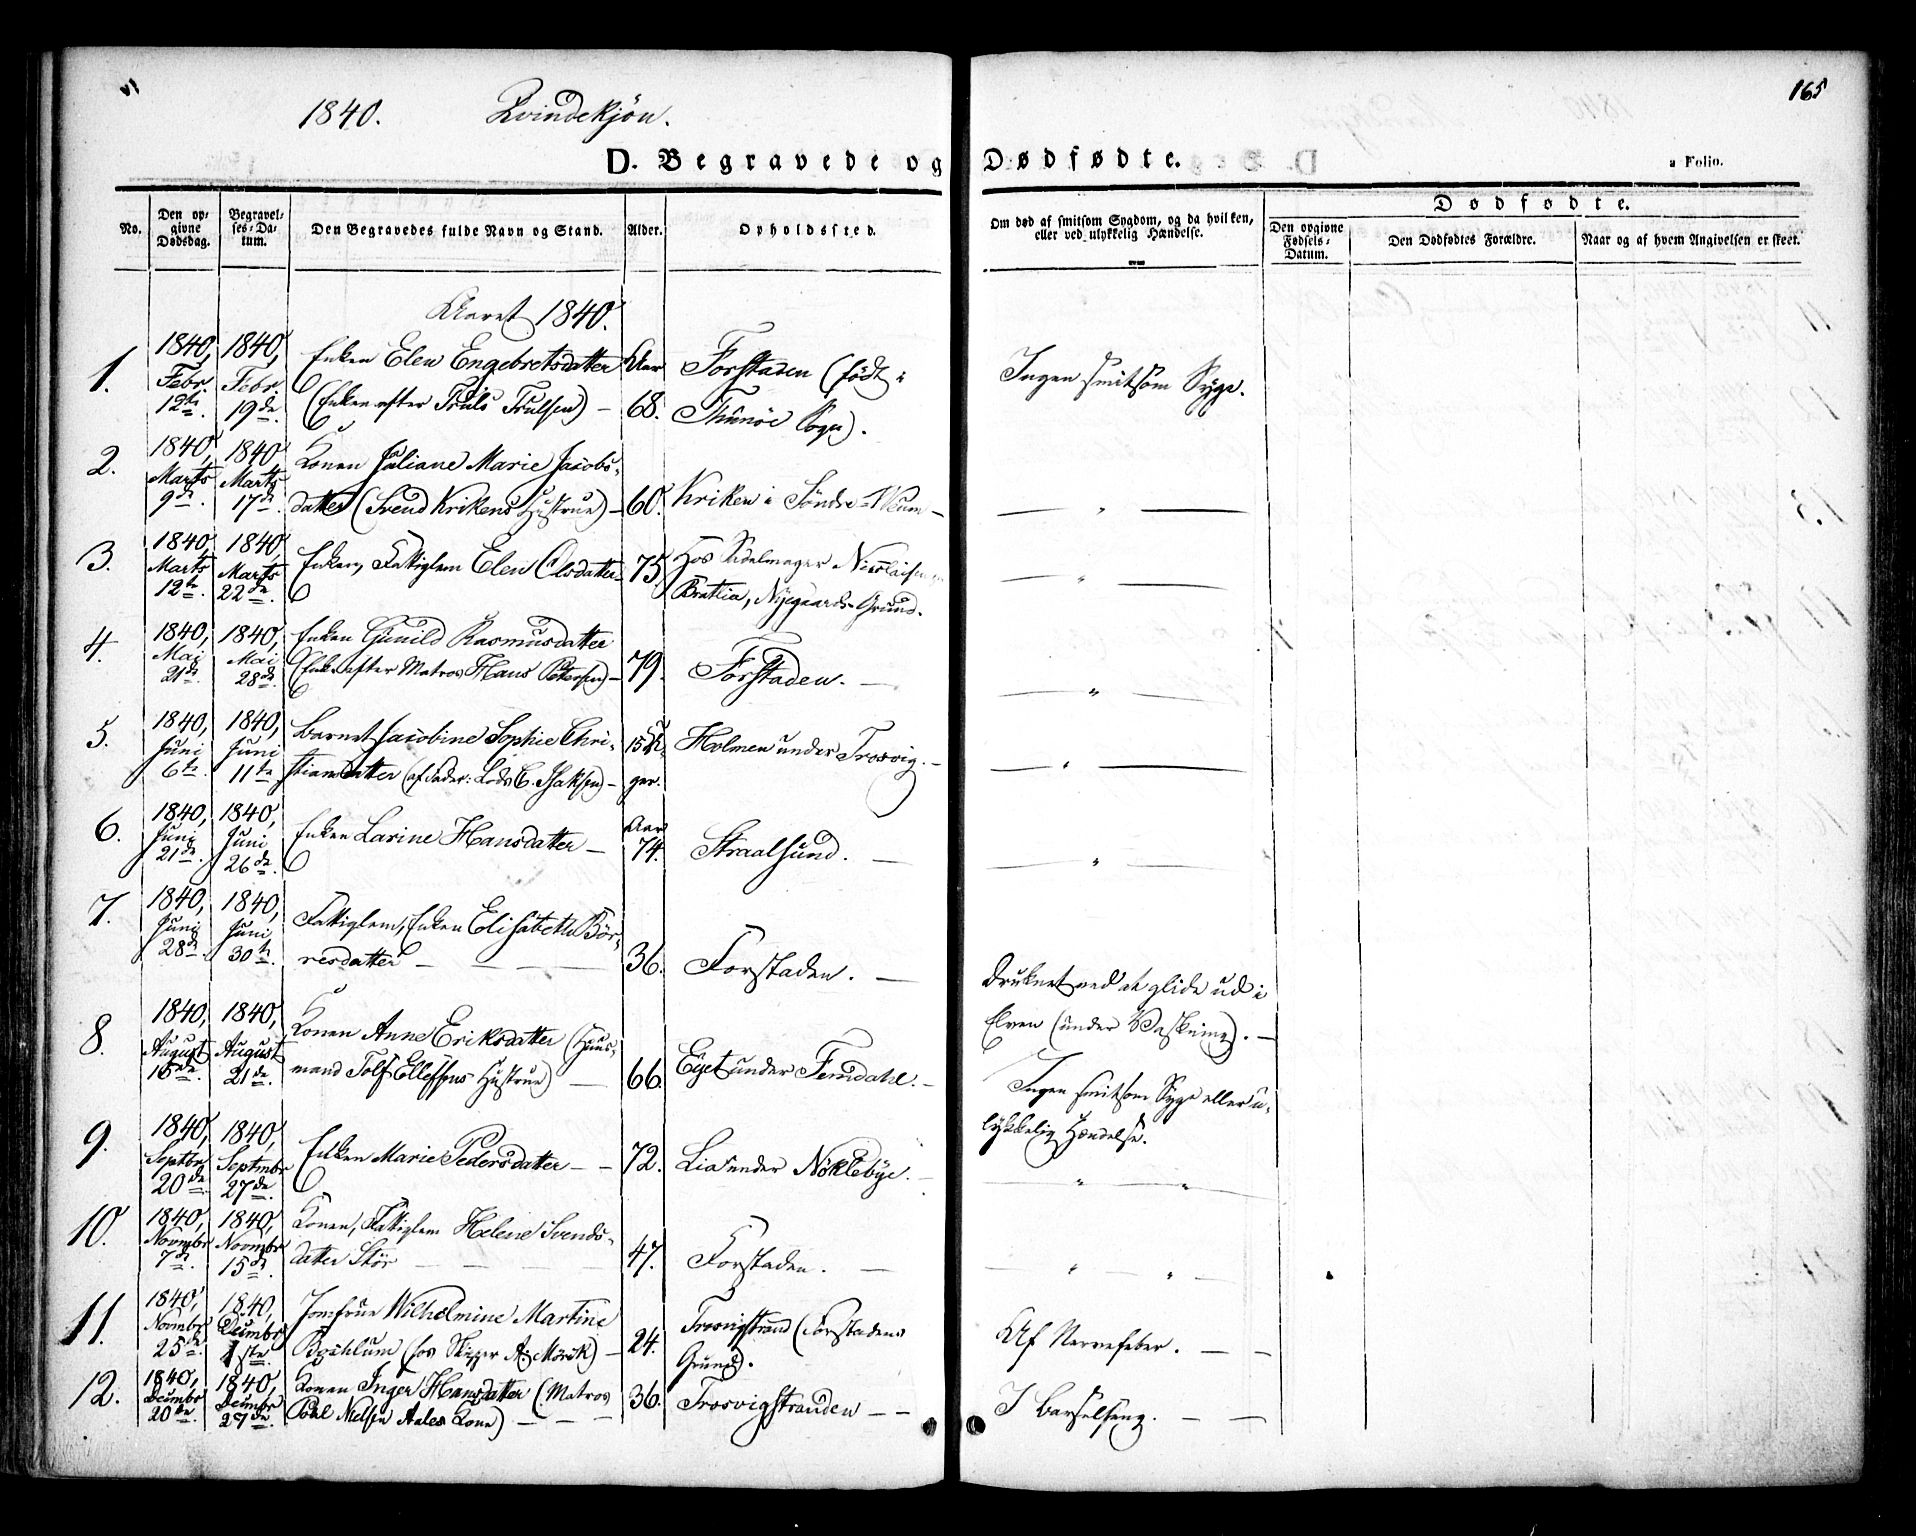 165
1840. Qvindekjön.
D. Begravede og Dødfødte.
a Folio.
No.
Den opgivne Dødsdag.
Begravelses-Datum.
Den Begravedes fulde Navn og Stand.
Alder.
Opholdssted.
Om død af smitsom Sygdom, og da hvilken, eller ved ulykkelig Hændelse.
Dødfødte.
Den opgivne Fødsels-Datum.
Den Dødfødtes Forældre.
Naar og af hvem Angivelsen er skeet.
Aaret 1840.
1. 1840, Febr. 12te. 1840, Febr. 19de. Enken Elen Engebretsdatter Aar Forstaden (født i Ingen smitsom Syge.
(Enken efter Truls Trulsen) – 68. Thunöe Sogn).
2. 1840, Marts 9de. 1840 Marts 17de. Konen Juliane Marie Jacobs-
datter (Svend Krikens Hustrue) – 60. Kriken i Söndre – — " —
3. 1840, Marts 12te. 1840, Marts 22de. Enken, Fattiglem Elen Olsdatter – 75. Hos Sadelmager Nicolaisen — " —
Bratlia, Nyegaards-Grund.
4. 1840, Mai 21de. 1840, Mai 28de. Enken Gunild Rasmusdatter
(Enke efter Matros Hans Petersen) – 79. Forstaden. — — " —
5. 1840, Juni 6te. 1840, Juni 11te. Barnet Jacobine Sophie Chri- 15 U- Holmen under Trosvig. – — " —
stiansdatter (af Fader: Lods C. Isaksen) – ger.
6. 1840, Juni 21de. 1840, Juni 26de. Enken Larine Hansdatter – Aar 74. Straalsund. — — " —
7. 1840, Juni 28de. 1840, Juni 30te. Fattiglem, Enken Elisabeth Bör-
resdatter – 36. Forstaden. — Druknet ved at glide ud i
Elven (under Vaskning). –
8. 1840, August 15de. 1840, August 21de. Konen Anne Eriksdatter (Huus-
mand Tolf Ellefsens Hustrue) — 66. Eget under Femdahl. – Ingen smitsom Syge eller u-
lykkelig Hændelse.
9. 1840, Septbr 20de. 1840, Septmbr 27de. Enken Marie Pedersdatter – – 72. Lia under Nöklebye. – " "
10. 1840, Novmbr 7de. 1840, Novmbr 15de. Konen, Fattiglem Helene Svends-
datter Stör — 47. Forstaden. — " "
11. 1840, Novmbr 25de. 1840, Decmbr 1ste. Jomfrue Wilhelmine Martine Trosvigstrand (Forstadens
(hos Skipper A: Mörck) – 24. Grund). Af Nervefeber. – –
12. 1840, Decmbr 20de. 1840, Decmbr 27de. Konen Inger Hansdatter (Matros 36. Trosvigstranden – – I Barselseng. – –
Nielsen Aales Kone) – – –